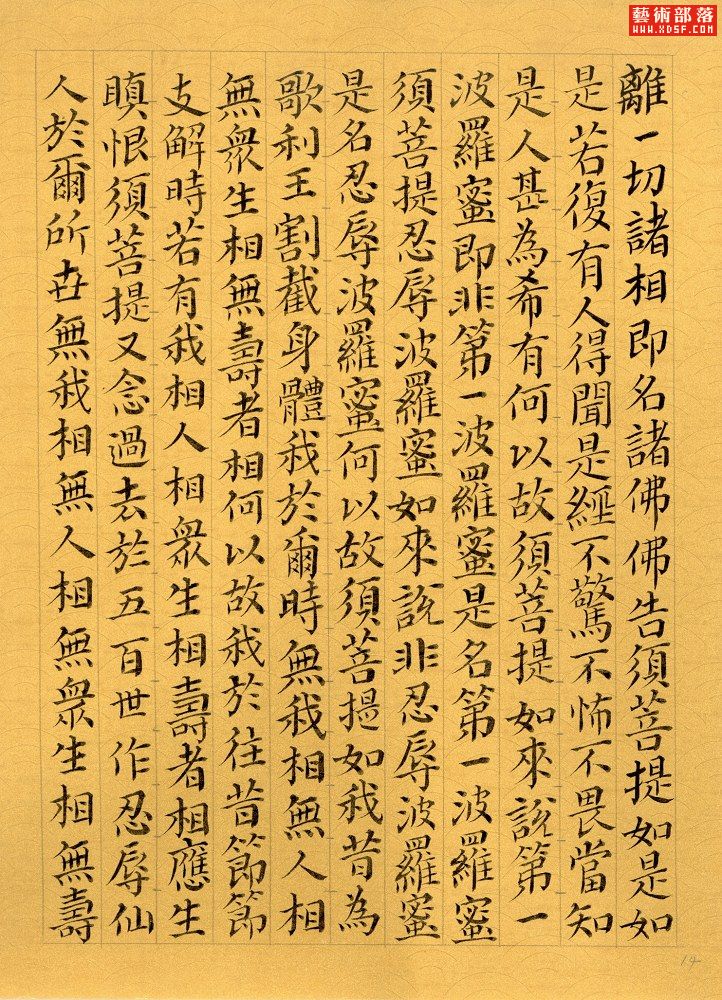 藝術部落
WWW.XDSF.COM
離一切諸相即名諸佛佛告須菩提如是如
是若復有人得聞是經不驚不怖不畏當知
是人甚為希有何以故須菩提如來說第一
波羅蜜即非第一波羅蜜是名第一波羅蜜
須菩提忍辱波羅蜜如來說非忍辱波羅蜜
是名忍辱波羅蜜何以故須菩提如我昔為
歌利王割截身體我於爾時無我相無人相
無眾生相無壽者相何以故我於往昔節節
支解時若有我相人相眾生相壽者相應生
瞋恨須菩提又念過去於五百世作忍辱仙
人於爾所世無我相無人相無眾生相無壽
14